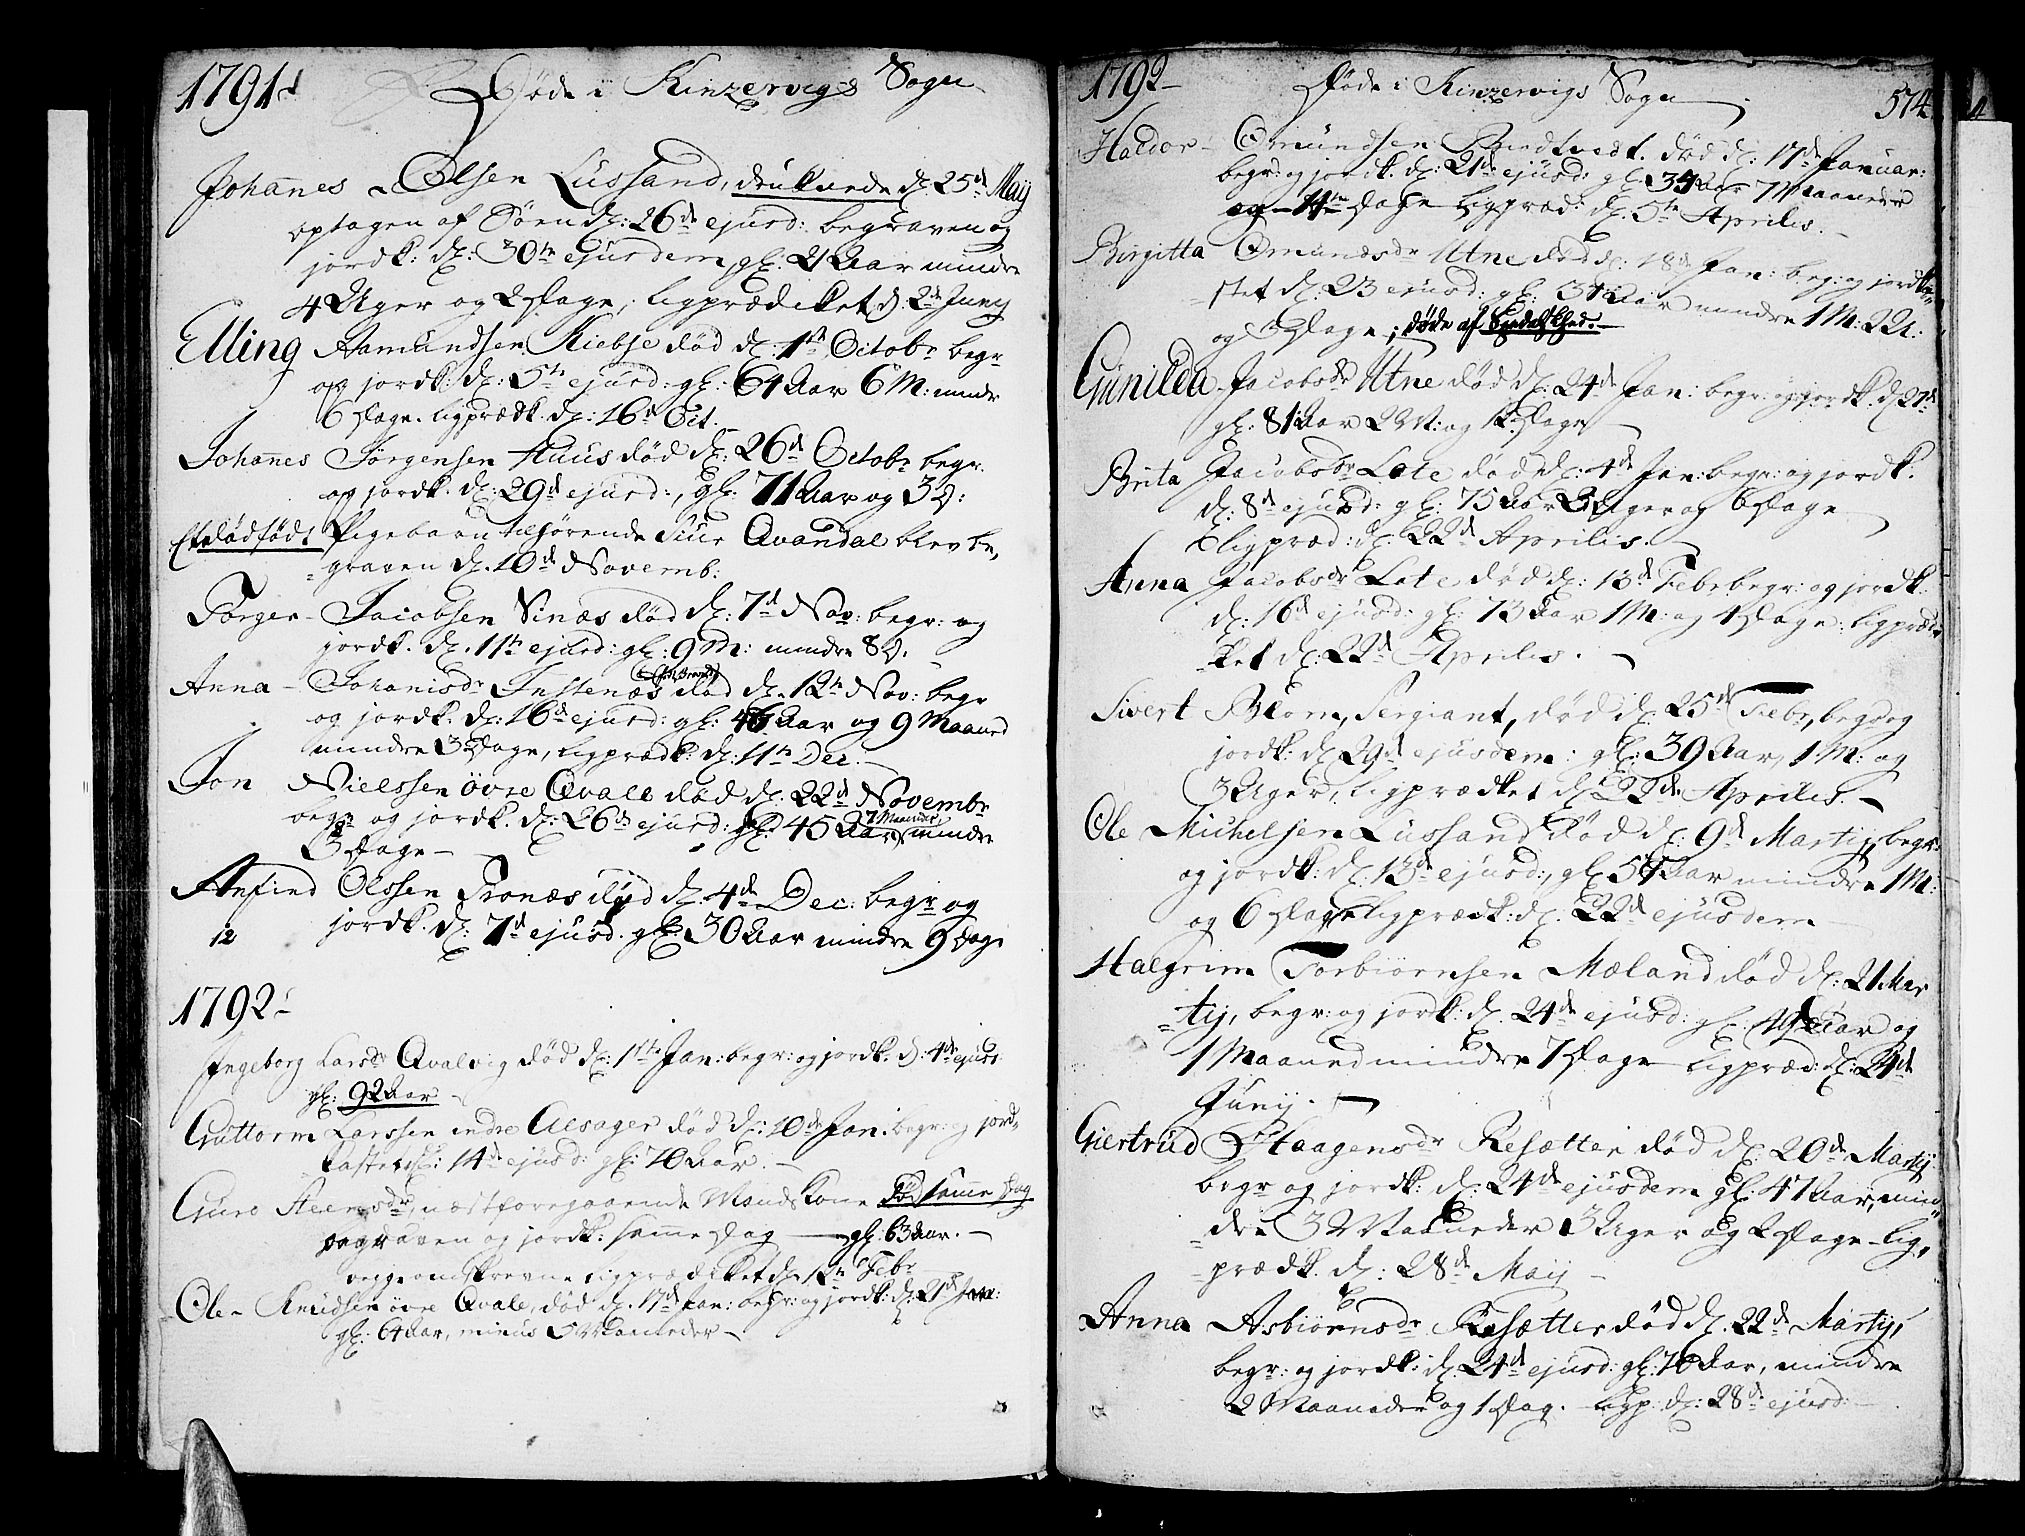 1791
Døde i Kinzervigs Sogn
Johanes Olsen Lussand, druknede d. 25de Maij
optagen af Søen d: 26de ejusd: begraven og
jordk: d: 30te ejusdem, gl: 21 Aar mindre
4 Uger og 2 Dage, ligprædiket d. 2de Junij
Elling Aamundsen Kiebse død d: 1ste Octobr begr
og jordk: d: 5te ejusd: gl: 64 Aar 6 M: mindr
6 Dage. ligprædk. d: 16de Oct.
Johanes Jørgensen Huus død d: 26de Octobr begr.
og jordk. d: 29de ejusd:, gl: 71 Aar og 3 D:
Et dødfødt Pigebarn tilhørende Siur Qvandal blev be,
graven d. 10de Novemb:
Torger Jacobsen Sinæs død d: 7de Nov: begr: og
jordk. d. 11te ejusd: gl: 9 M: mindre 8 D.
Anna Johanisdr Instenæs død d. 12te Nov: begr
og jordk. d: 16de ejusd: gl: 46 Aar og 9 Maaned
mindre 3 Dage, ligprædk. d: 11te Dec.
Jon Nielssen øvre Qvale død d: 22de Novembr
begr og jordk. d: 26de ejusd: gl: 45 Aar 7 Maaneder mindre
3 Dage
Anfind Olssen Tronæs død d. 4de Dec: begr og
12 jordk. d: 7de ejusd. gl: 30 Aar mindre 9 Dage
1792
Ingeborg Larsdr Qvalvig død d: 1ste Jan: begr: og jordk. d. 4de ejusd
gl: 92 Aar
Guttorm Larssen indre Alsager død d: 10de Jan: begr: og jord,
kastet d: 14de ejusd: gl: 70 Aar.
Guro Steensdr, næstforegaaende Mands Kone død samme Dag
begraven og jordk: samme Dag gl. 63 Aar.
begge omskrevne ligprædiket d. 12te Febr
Ole Knudsen øvre Qvale, død d. 17de Jan: begr: og jordk: d: 21de Jan:
gl: 64 Aar, minus 5 Maaneder
1792
Døde i Kinzervigs Sogn
574
Haldor Omundsen død d: 17de Januar:
begr: og jordk. d: 21de ejusd: gl: 34 Aar 7 Maaneder
og 14 Dage ligpræd: d. 5te Aprilis.
Birgitta Omundsdr Utne død d: 18de Jan: beg: og jordka,
stet d: 23 ejusd: gl: 34 Aar mindre 1 M: 2 U:
og 3 Dage; døde af Spedalskhed.
Gunilda Jacobsdr Utne død d: 24de Jan: begr: og jordk. d 27de
gl: 81 Aar 2 M: og 12 Dage
Brita Jacobsdr Lote død d: 4de Jan: begr: og jordk.
d: 8de ejusd: gl: 75 Aar 3 Uger og 6 Dage
ligpræd: d: 22de Aprilis.
Anna Jacobsdr Lote, død d: 13de Febr begr: og jordk.
d: 16de ejusd: gl: 73 Aar 1 M: og 4 Dage: ligprædi,
ket d: 22de Aprilis.
Sivert Blom, Sergiant, død d: 25de Febr, begr og
jordk: d 29de ejusdem: gl: 39 Aar, 1 M: og
3 Uger, ligprædket d 22de Aprilis.
Ole Michelsen Lussand død d: 9de Martij, begr
og jordk: d: 13de ejusd:, gl: 54 Aar mindre 1 M:
og 6 Dage ligprædk: d: 22de ejusdem
Halgrim Torbiørnsen Mæland død d: 21 Mar
tij, begr: og jordk: d. 24de ejusd: gl: 49 Aar og
1 Maaned mindre 7 Dage ligpræd: d: 24de
Junij.
Giertrud Haagensdr Resætter død d: 20de Martij
begr og jordk: d: 24de ejusdem gl: 47 Aar, min,
dre 3 Maaneder 3 Uger og 2 Dage lig,
prædk. d: 28de Maij
Anna Asbiørnsdr Resætter død d. 22de Martij,
begr: og jordk: d. 24de ejusd: gl. 70 Aar, mindre
2 Maaneder og 1 Dag. Ligp. d: 28de ejusd: